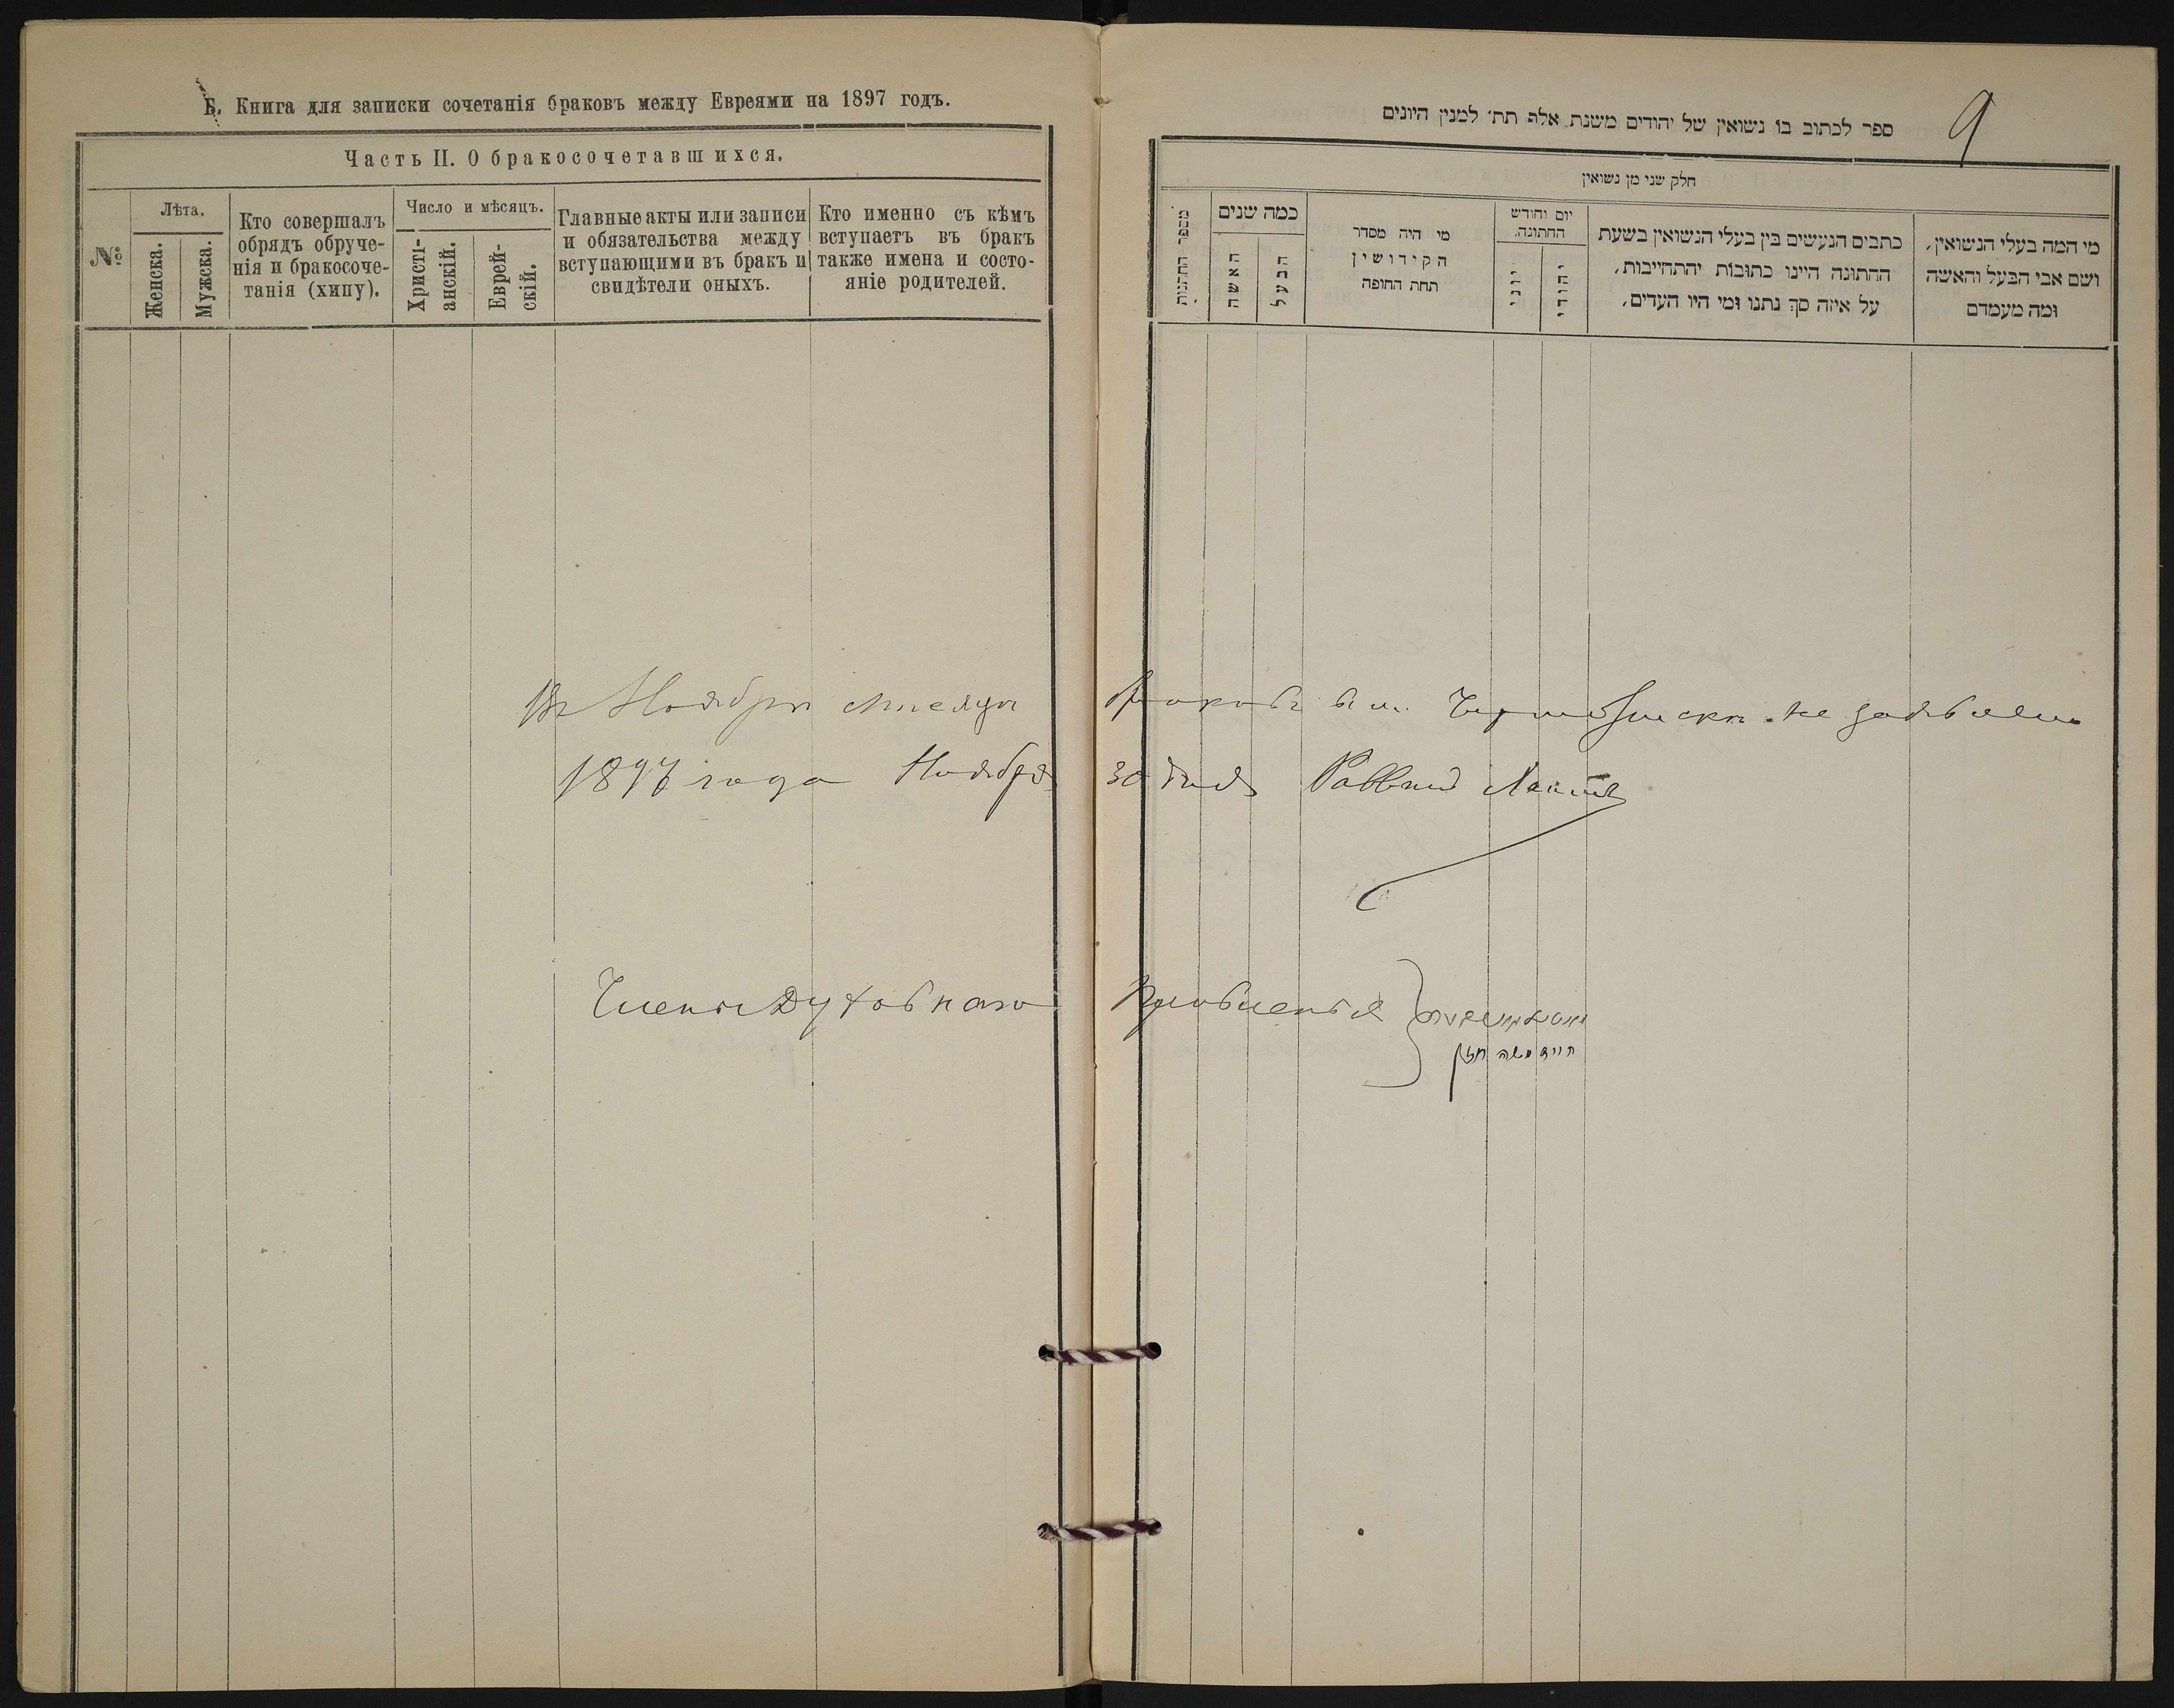 Б. Книга для записки сочетанія браковъ между Евреями на 1897 годъ.
Часть II. О бракосочетавшихся.
№
Лѣта.
Женска.
Мужска.
Кто совершалъ
обрядъ обруче-
нія и бракосоче-
танія (хипу).
Число и мѣсяцъ.
Христі-
анскій.
Еврей-
скій.
Главные акты или записи
и обязательства между
вступающими въ бракъ и
свидѣтели оныхъ.
Кто именно съ кѣмъ
вступаетъ въ бракъ
также имена и состо-
яніе родителей.
9
ספר לכתוב בו נשואין של יהודים משנת אלף תת׳ למנין היונים
חלק שני מן נשואין
מספר החתנות
כמה שנים
האשה
הבעל
מי היה מסדר
הקידושין
תחת החופה
יום וחודש
החתונה.
יוני
יהודי
כתבים הנעשים בין בעלי הנשואין בשעת
החתונה היינו כתובות יהתחייבות,
על איזה סך נתנו ומי היו העדים,
מי המה בעלי הנשואין,
ושם אבי הבעל והאשה
ומה מעמדם
Въ Ноябрѣ мѣсяцѣ браковъ в м. не
1897 года Ноября 30 дня Раввинъ
Члены Духовнаго Правленія
משה חזן